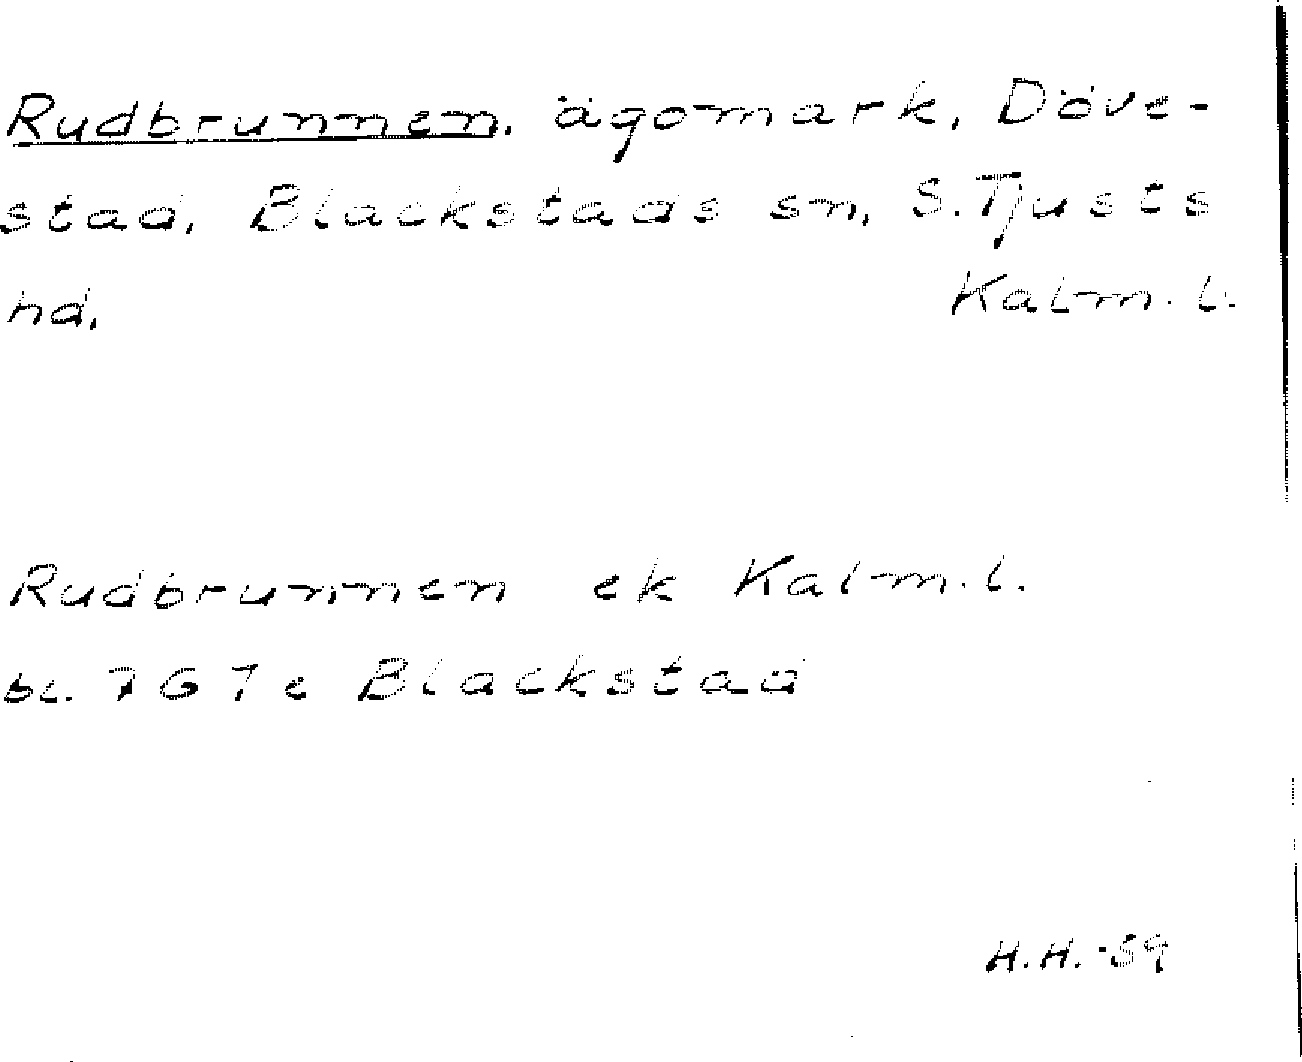 Rudbrunnen, ägomark, Döve-
stad, Blackstads sn, S. Tjusts
hd, Kalm. l.
Rudbrunnen ek Kalm. l.
bl. 7G7e Blackstad
H.H. -59